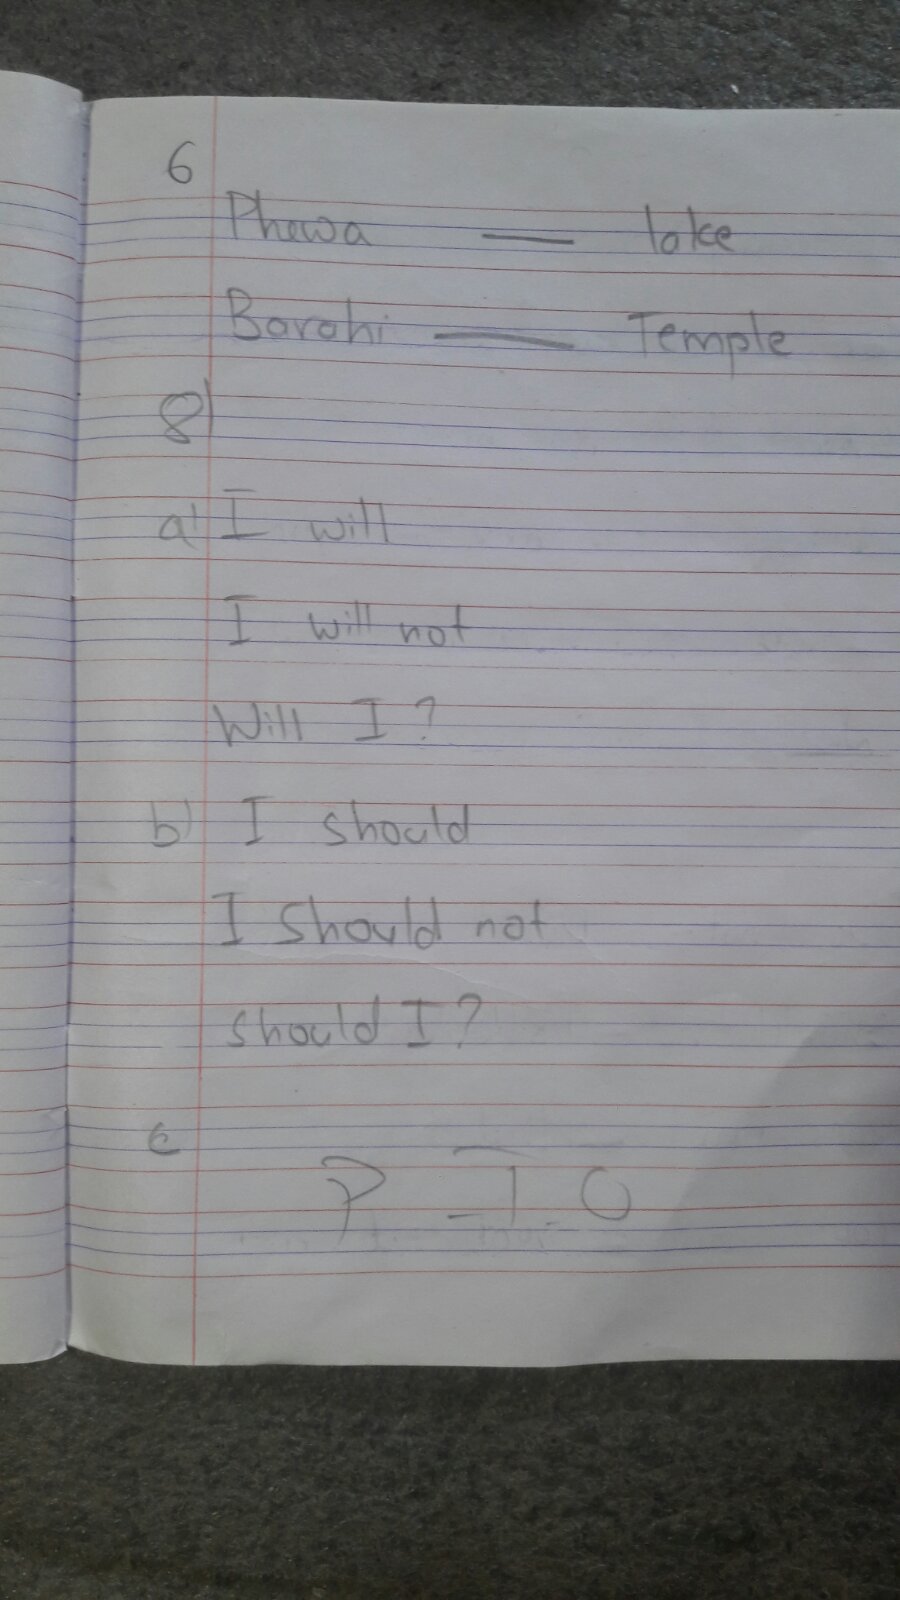 6
Phewa — lake
Barahi — Temple
8)
a) I will
I will not
Will I ?
b) I should
I should not
should I ?
c
P T O